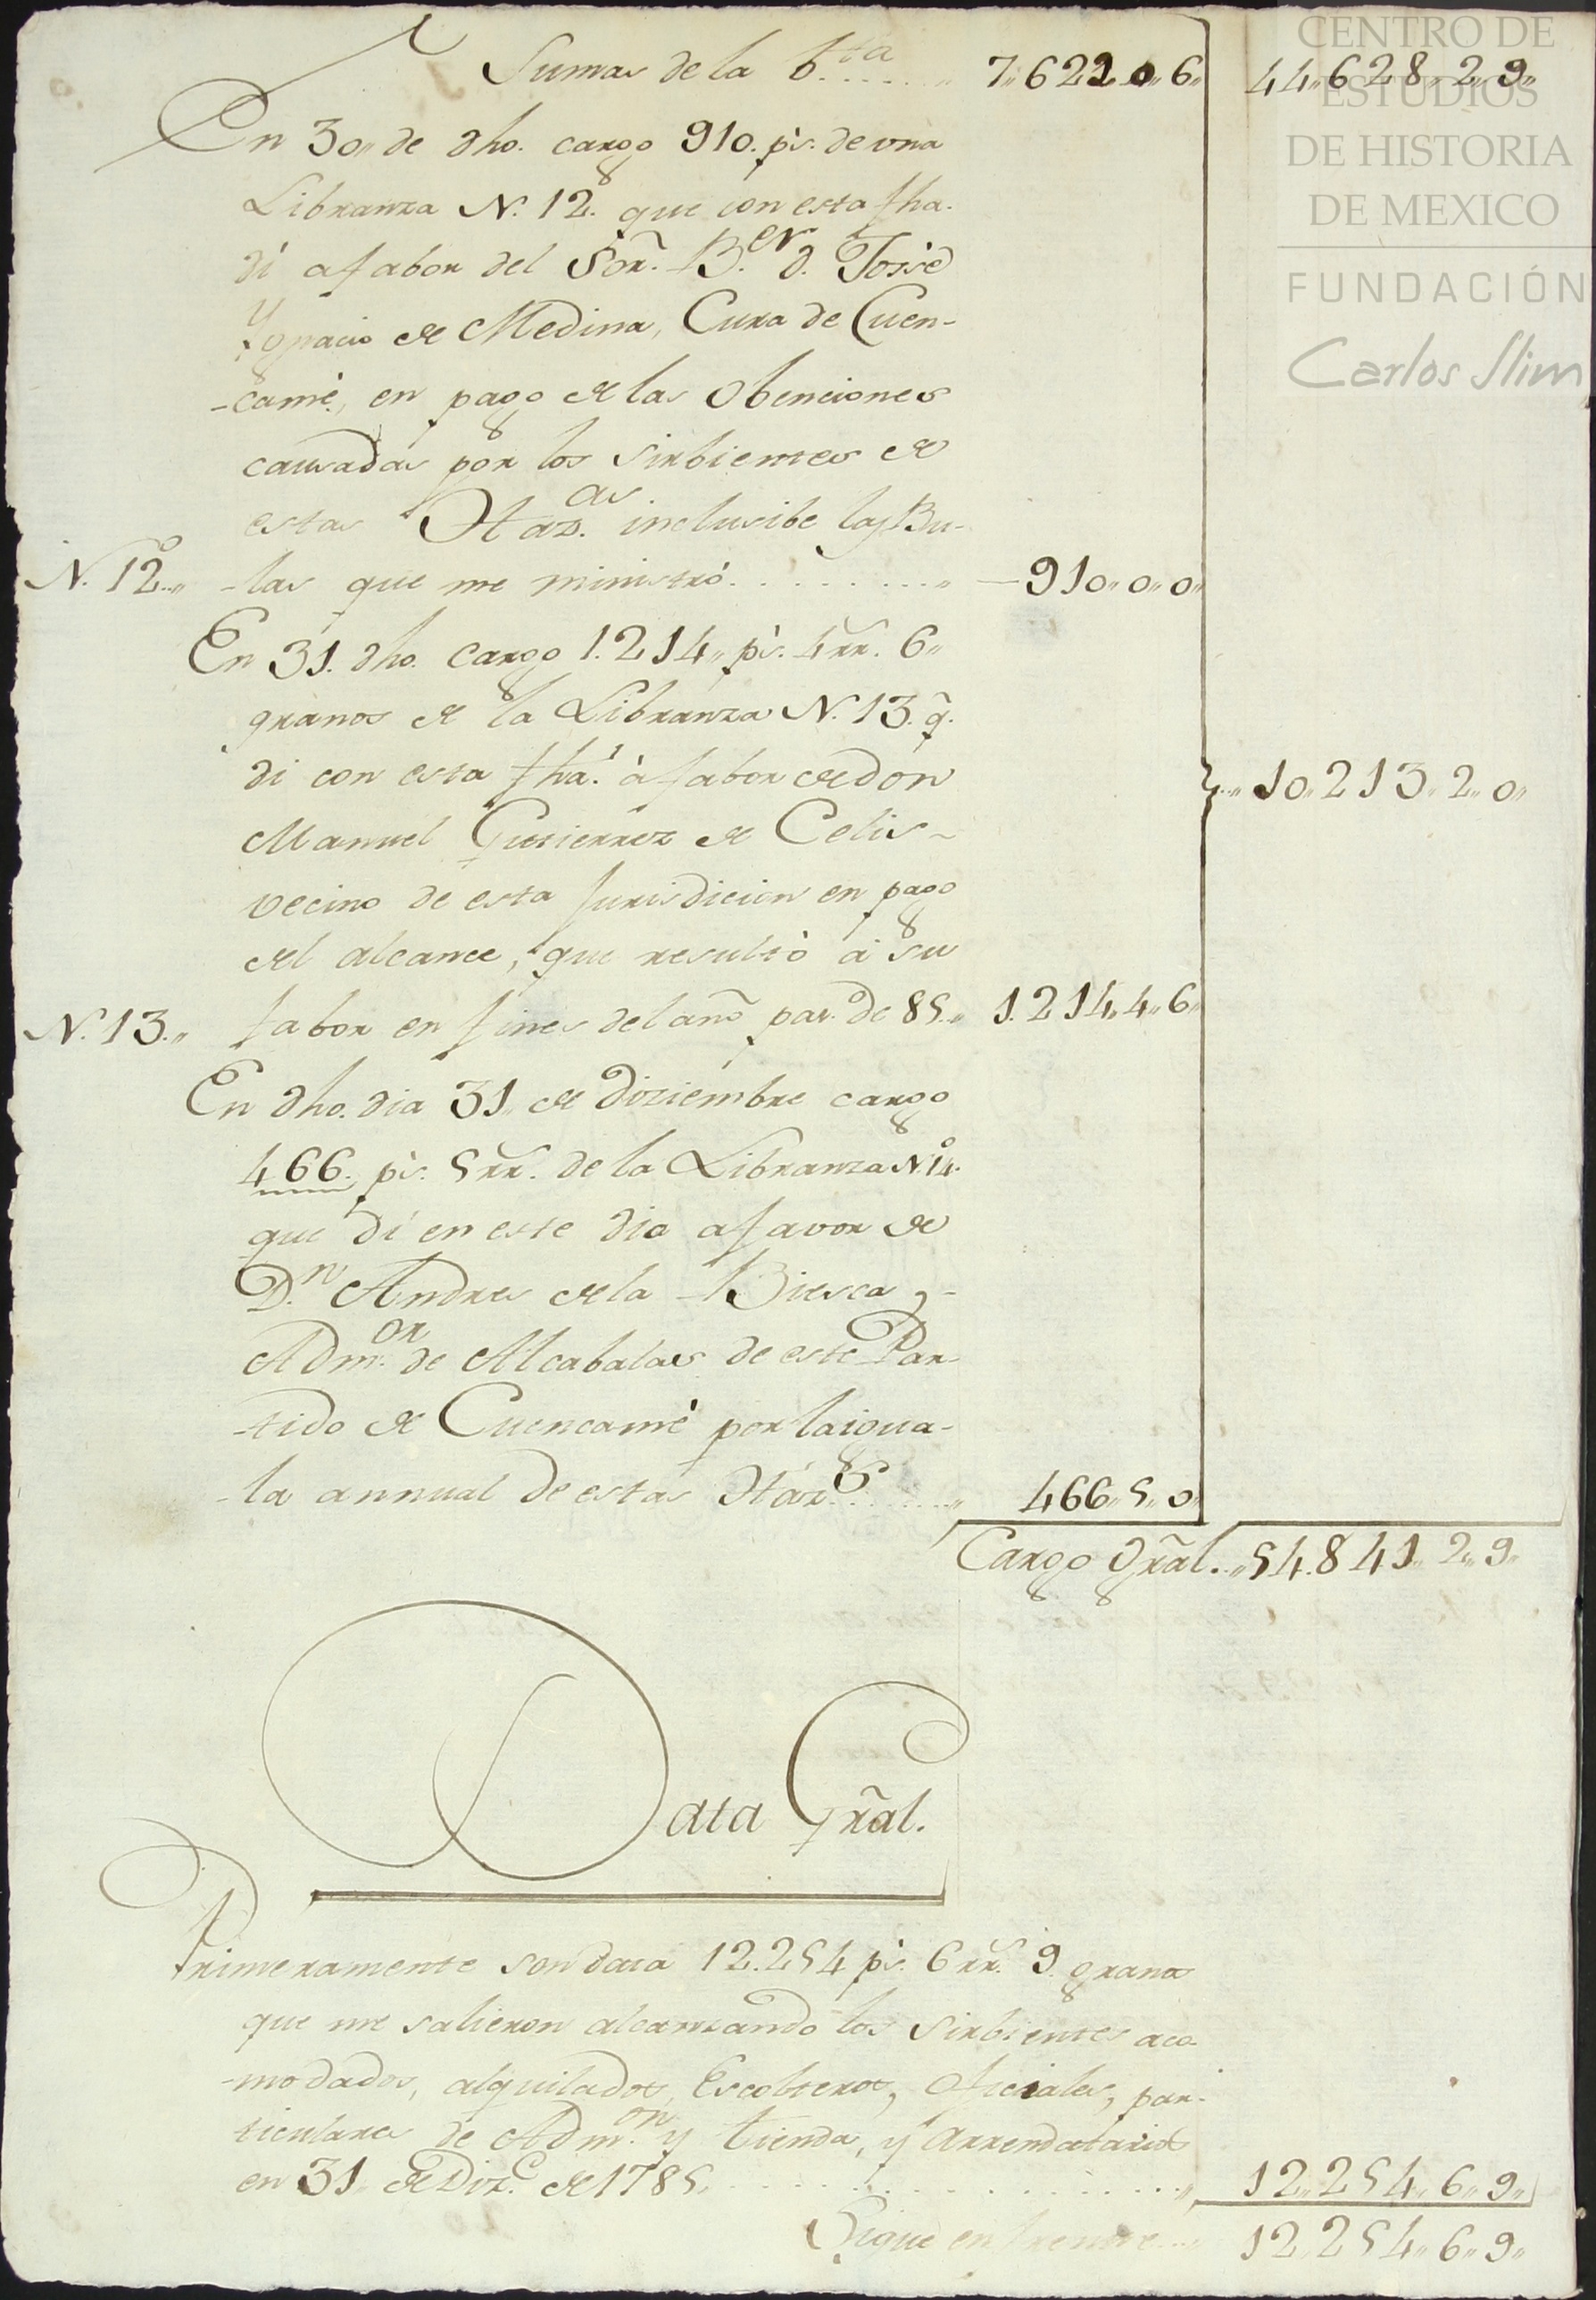 Sumas de la b.ta ...... 7,,622,,0,,6,, 44,,628,,2,,9,,
En 30,, de dho. cargo 910. p.s de vna
Libranza N. 12. que con esta fha.
di a fabor del Sor̃. B.er d. Jossé
Ygnacio de Medina, Cura de Cuen-
-camé, en pago de las Obenciones
causadas por los sirbientes de
estas Haz.as inclusibe las Bu-
N.º 12.,, -las que me ministró ......... ,, 910,,0,,0,,
En 31. dho. cargo 1.214,, p.s 4 rr̃. 6,,
granos de la Libranza N. 13. q̃.
di con esta fha. à fabor de don
} .. 10,,213,,2,,0,,
Manuel Gutierrez de Celis~
vecino de esta Jurisdicion en pago
del alcance, que resultò à su
N. 13.,, fabor en fines del año pas.do de 85.,, 1.214,,4,,6,,
En dho. dia 31,, de Diziembre cargo
466. p.s 5 rr̃. de la Libranza N.º 14.
que di en este dia a favor de
D.n Andres de la Biesca,-
Adm.or de Alcabalas de este Par-
-tido de Cuencamé por la igua-
-la annual de estas Haz.s ........ ,, 466,,5,,0,,
Cargo Gr̃al. ,, 54.841,,2,,9,,
Data Gr̃al.
Primeramente son data 12.254 p.s 6 rr̃. 9. granos
que me salieron alcanzando los sirbientes aco-
-modados, alquilados, Escolteros, Oficiales, par-
ticulares de Adm.on y tienda, y Arrendatarios
en 31,, de Diz.e de 1785. ............ ,, 12,,254,,6,,9,,
Sigue en frente ... ,, 12,,254,,6,,9,,
CENTRO DE
ESTUDIOS
DE HISTORIA
DE MEXICO
FUNDACIÓN
Carlos Slim